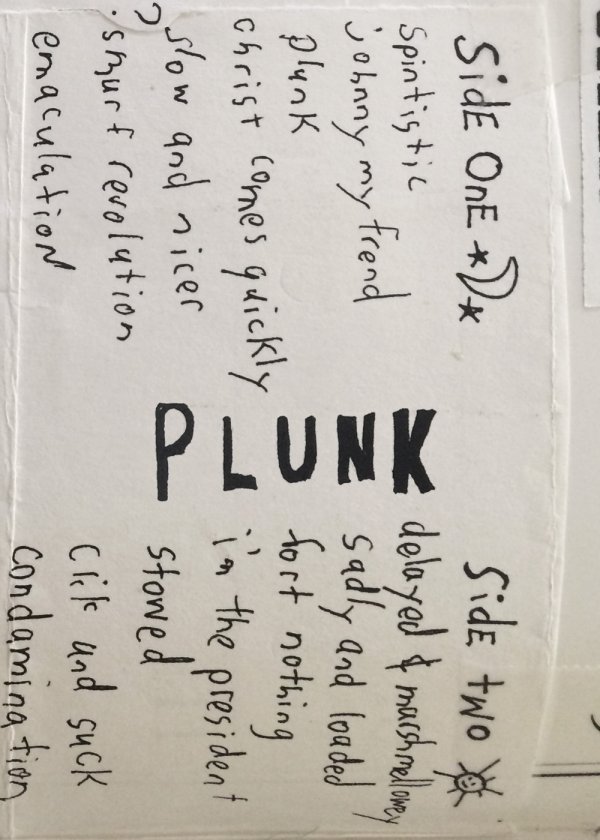 SidE OnE
spintistic
johnny my frend
plunk
christ comes quickly
slow and nicer
? smurf revolution
emaculation
PLUNK
SidE two
delayed & marshmellowey
sadly and loaded
fort nothing
i'm the president
stowed
click and suck
condamination